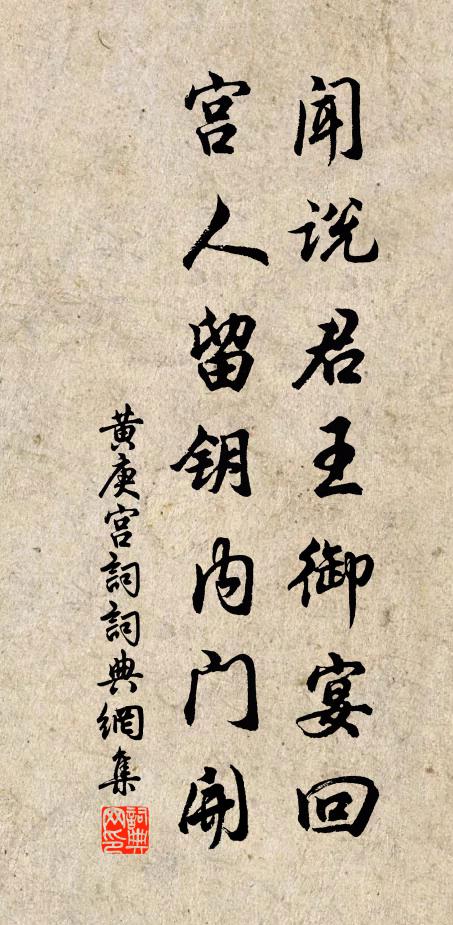 闻说君王御宴回
宫人留钥内门开
黄庚宫詞詞典網集
詞典网印